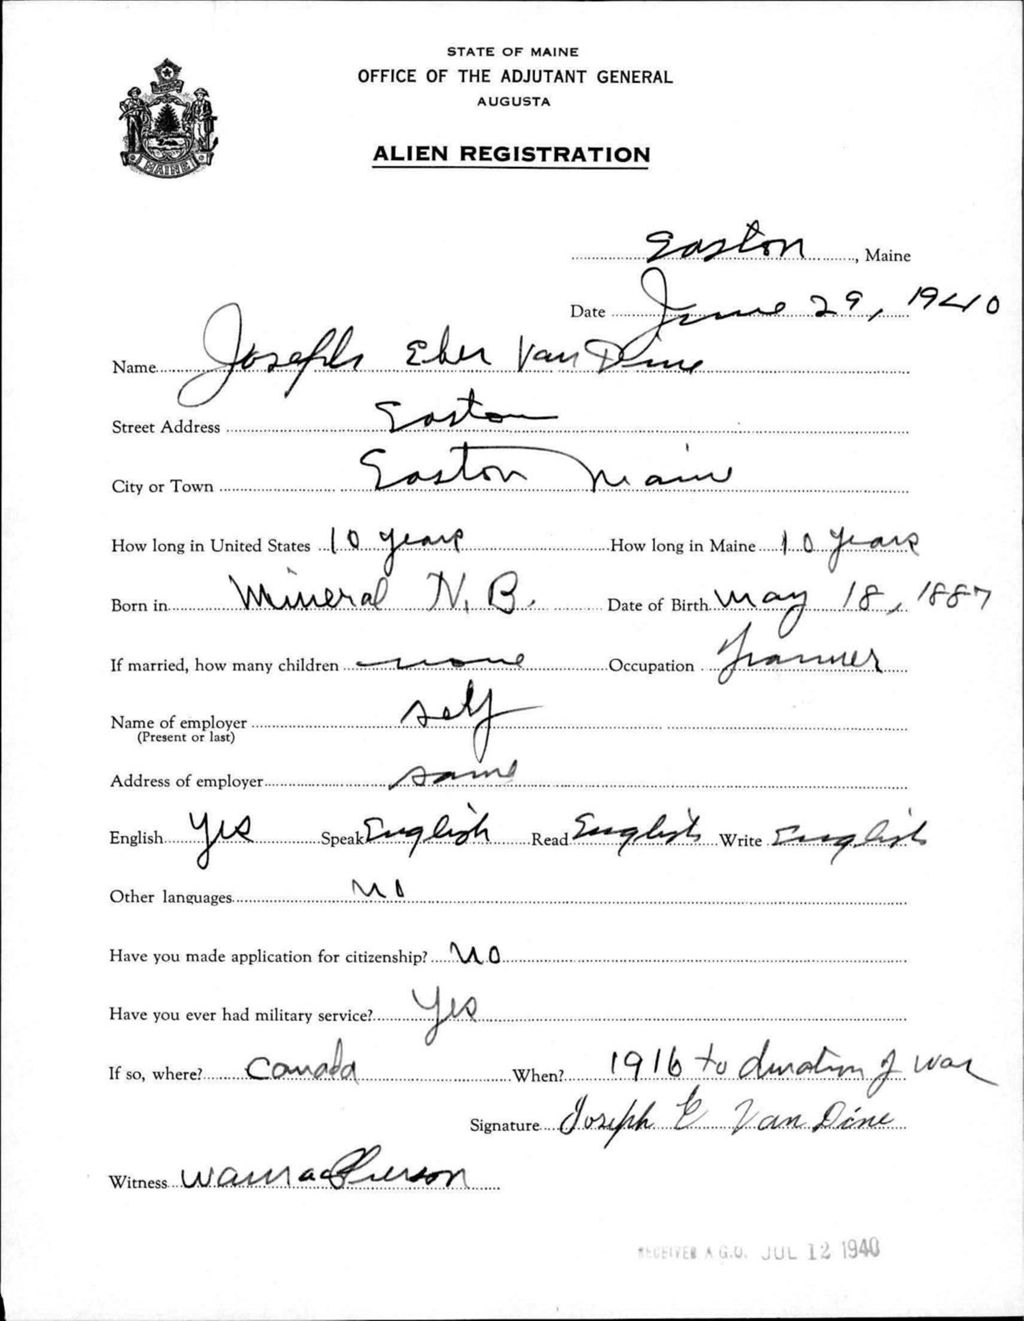 STATE OF MAINE
OFFICE OF THE ADJUTANT GENERAL
AUGUSTA
MAINE
ALIEN REGISTRATION
Easton, Maine
Date June 29, 1940
Name Joseph Eber Van Dine
Street Address Easton
City or Town Easton Maine
How long in United States 10 years How long in Maine 10 years
Born in Mineral N. B. Date of Birth May 18, 1887
If married, how many children none Occupation Farmer
Name of employer self
(Present or last)
Address of employer same
English Yes Speak English Read English Write English
Other languages no
Have you made application for citizenship? no
Have you ever had military service? Yes
If so, where? Canada When? 1916 to duration of war
Signature Joseph E Van Dine
Witness Pierson
RECEIVED A.G.O. JUL 12 1940